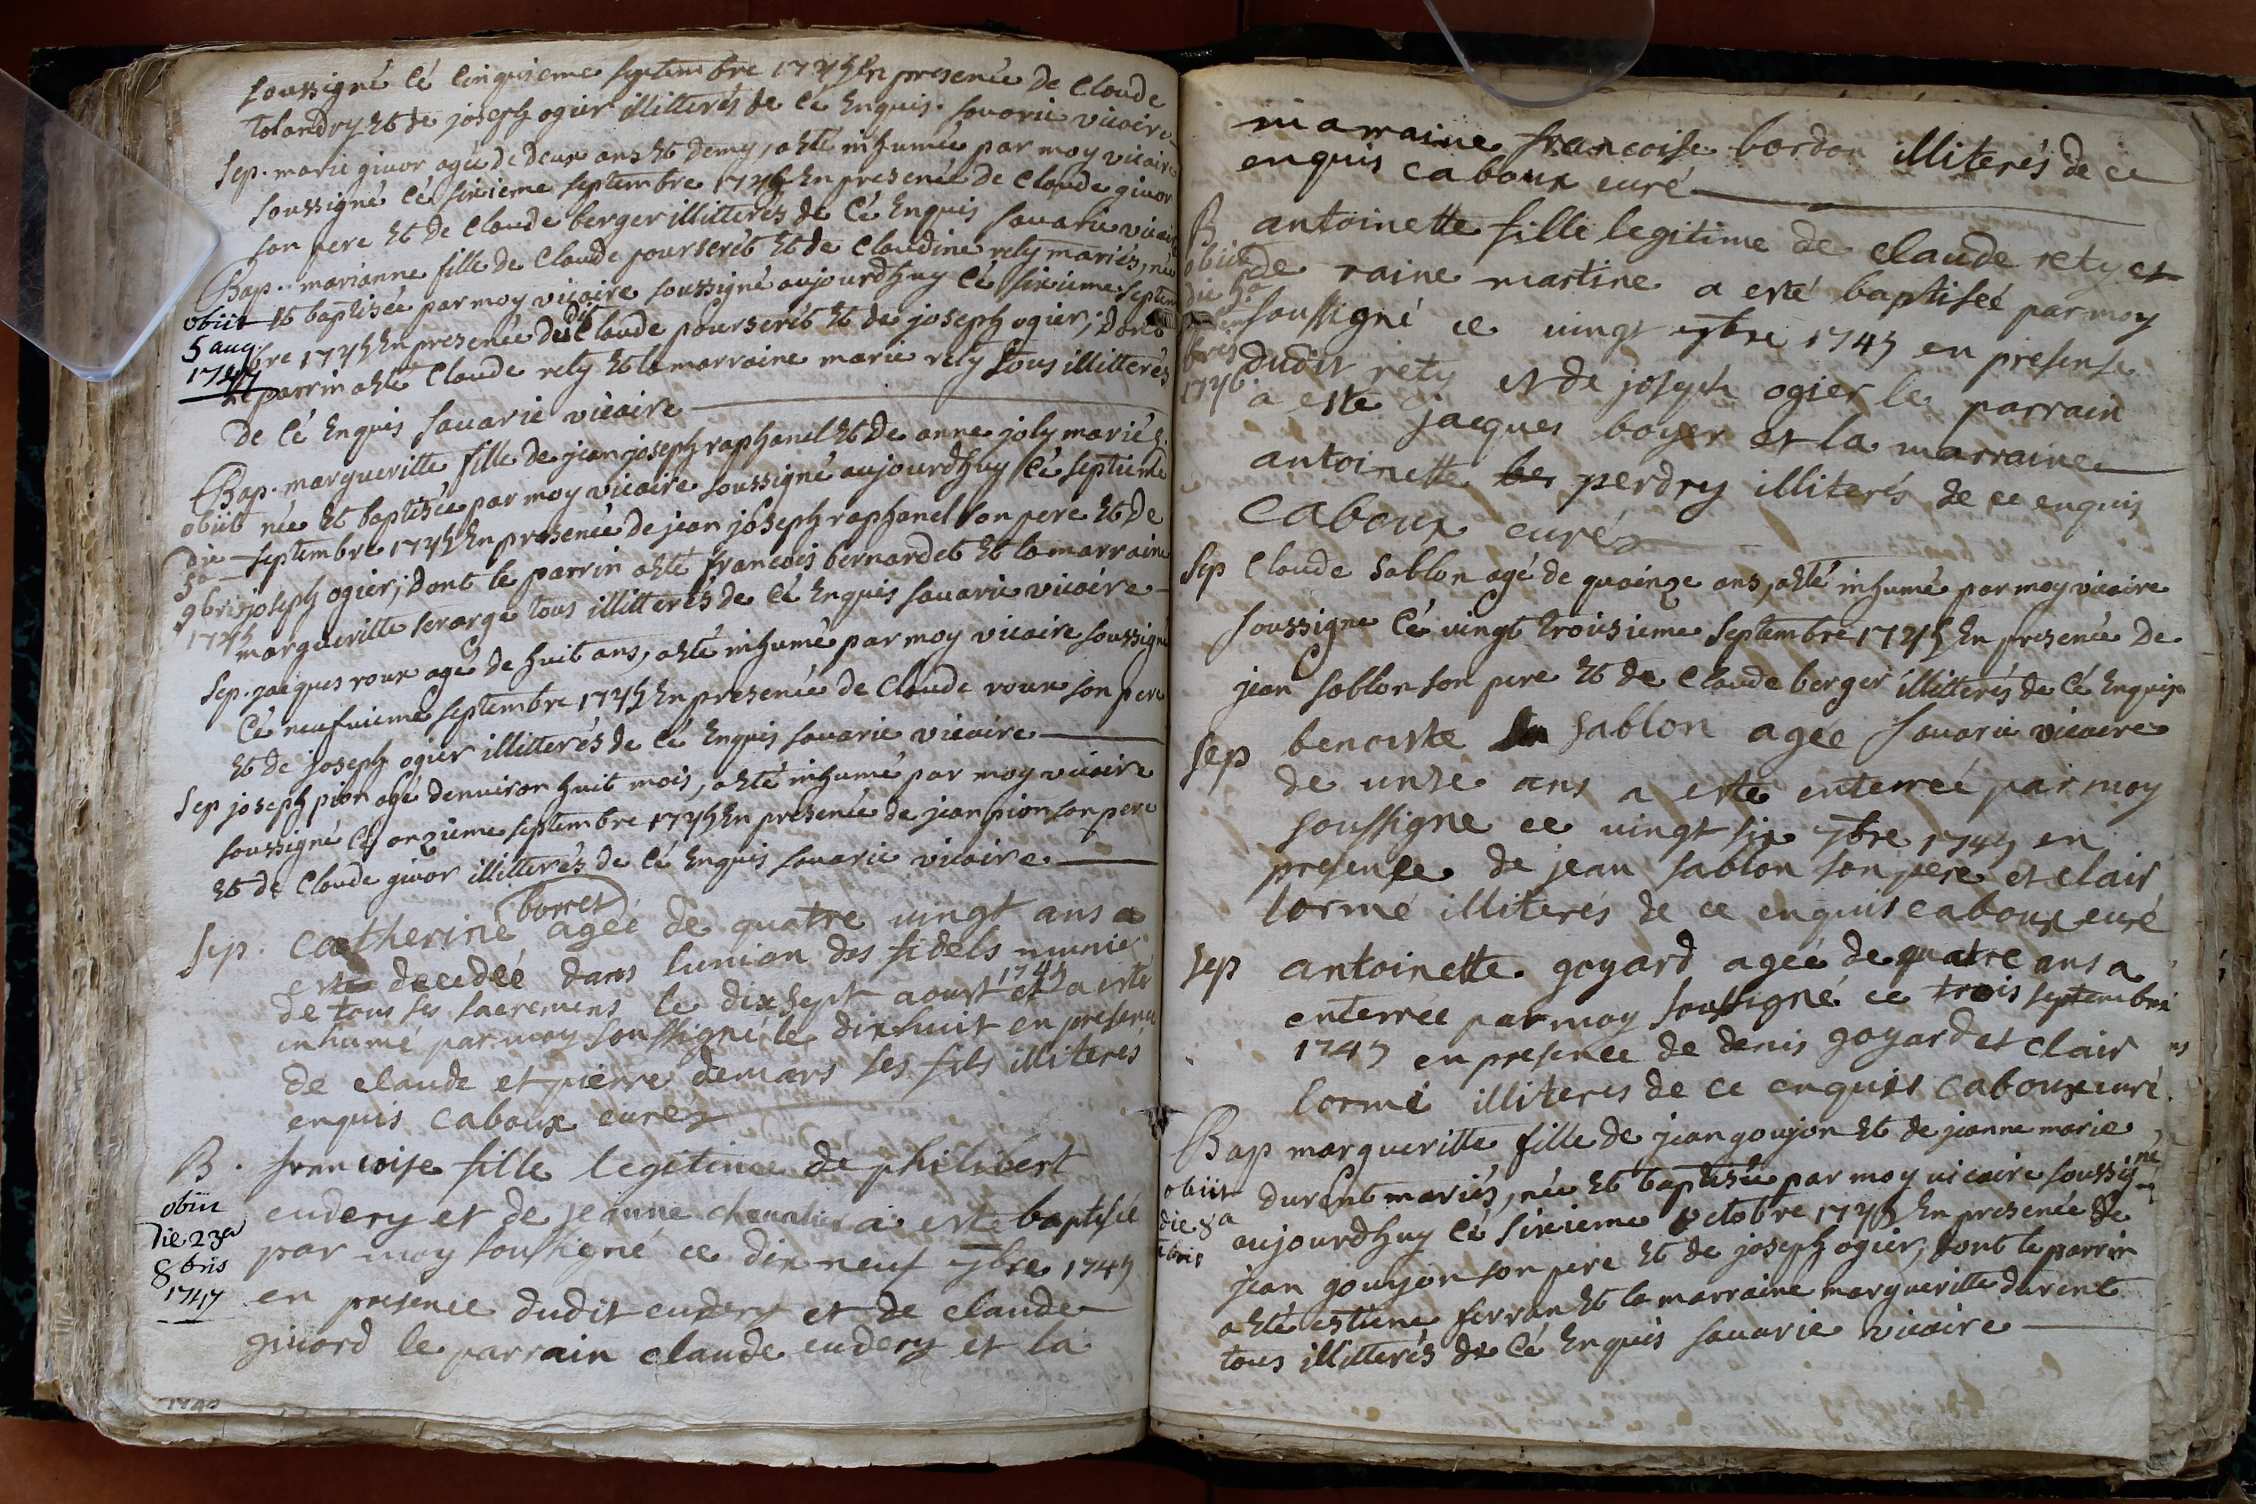 soussigné Cé Cinquieme septembre 1745 En presence de Claude
Tolandry Et de joseph ogier illitterés de Cé Enquis. Savarie vicaire
Sep. marie givor agée de Deux ans Et demy, a Eté inhumée par moy vicaire
soussigné Cé sixieme septembre 1745 En presence de Claude givor
son pere Et de Claude berger illitterés de Cé Enquis Savarie vicaire
Bap. marianne fille de Claude pourseret Et de Claudine rety mariés, née
obiit 5 aug. 1747
Et baptisée par moy vicaire soussigné aujourdhuy Cé sixieme septem
bre 1745 En presence dudit Claude pourseret Et de joseph ogier; Dont
le parrin a Eté Claude rety Et la marraine marie rety tous illitterés
de Cé Enquis Savarie vicaire
Bap. margueritte fille de jean joseph raphanel Et de anne joly mariés.
obiit die 5a 9bris 1745
née Et baptisée par moy vicaire soussigné aujourdhuy Cé septieme
septembre 1745 En presence de jean joseph raphanel son pere Et de
joseph ogier; Dont le parrin a Eté francois bernardet Et la marraine
margueritte serarge tous illitterés de Cé Enquis Savarie vicaire
Sep. jacques roux agé de huit ans, a Eté inhumé par moy vicaire soussigné
Cé neufvieme septembre 1745 En presence de Claude roux son pere
Et de joseph ogier illitterés de Cé Enquis Savarie vicaire
Sep joseph pion agé denviron huit mois, a Eté inhumé par moy vicaire
soussigné Cé onzieme septembre 1745 En presence de jean pion son pere
Et de Claude givor illitterés de Cé Enquis Savarie vicaire
borret
Sep. Catherine agée de quatre vingt ans a
esté decedée dans lunion des fidels munie
de tous ses sacremens le dix sept aoust 1745 et a esté
inhumé par moy soussigné le dix huit en presence
de claude et pierre demars ses fils illiteres
enquis caboux curé
B. francoise fille legitime de philibert
obiit die 23a 8bris 1747
eudery et de jeanne chevalier a esté baptisée
par moy soussigné ce dix neuf 7bre 1745
en presence dudit eudery et de claude
givord le parrain claude eudery et la
marraine francoise bordon illiterés de ce
enquis caboux curé
B antoinette fille legitime de claude rety et
obiit die 5a bres 1746
de raine martine a esté baptiseé par moy
soussigné ce vingt 7bre 1745 en presense
dudit rety et de joseph ogier le parrain
a este jacques boyer et la marraine
antoinette perdry illiterés de ce enquis
caboux curé
Sep Claude sablon agé de quainze ans, a Eté inhumé par moy vicaire
soussigne Cé vingt troisieme septembre 1745 En presence de
jean sablon son pere Et de Claude berger illitterés de Cé Enquis
Savarie vicaire
Sep benoiste sablon agée
de unze ans a este enterreé par moy
soussigne ce vingt six 7bre 1745 en
presence de jean sablon son pere et clair
lorme illiterés de ce enquis caboux curé
Sep antoinette goyard agée de quatre ans a
enterrée par moy soussigné ce trois septembre
1745 en presence de denis goyard et clair
lorme illiteres de ce enquis caboux curé
Bap margueritte fille de jean goujon Et de jeanne marie
obiit die 8a bris
durent mariés, née Et baptisée par moy vicaire soussigné
aujourdhuy Cé sixieme octobre 1745 En presence de
jean goujon son pere Et de joseph ogier, dont le parrin
a Eté estiene ferran Et la marraine margueritte durent
tous illitterés de Cé Enquis Savarie vicaire